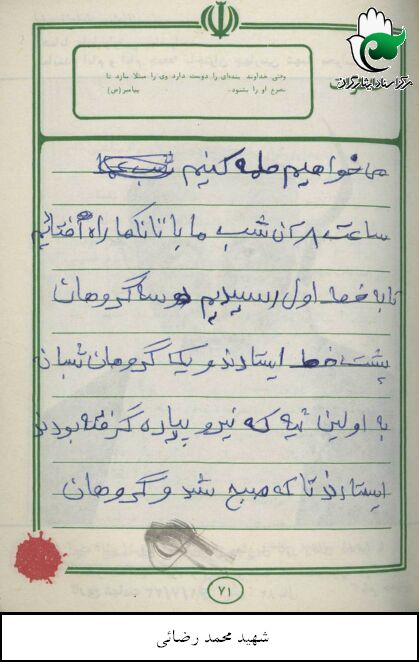 مرکز اسناد ایثارگران
وقتی خداوند بنده‌ای را دوست دارد وی را مبتلا سازد تا
تضرع او را بشنود. پیامبر(ص)
می خواهیم حمله کنیم
ساعت ۸ آن شب ما با تانکها راه افتادیم
تا به خط اول رسیدیم دو سه گروهان
پشت خط ایستادند و یک گروهان شبان
به اولین تپه که نیرو پیاده گرفته بودند
ایستادند تا که صبح شد و گروهان
۷۱
شهید محمد رضائی